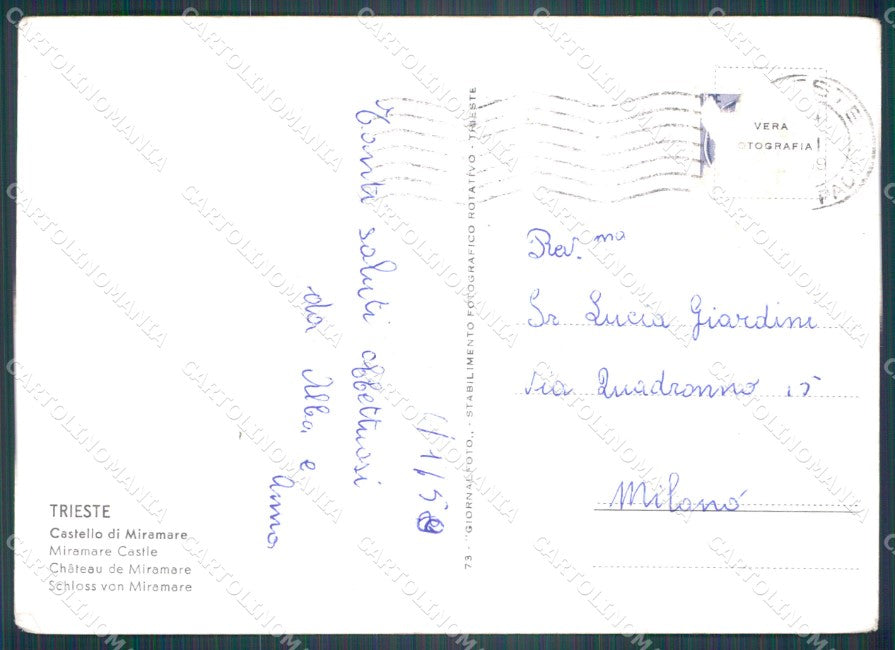 VERA
FOTOGRAFIA
Tanti saluti affettuosi
da Alba e
Anna
Rev.ma
Sr Lucia Giardini
Via Quadronno 15
Milano
73 - "GIORNALFOTO,, - STABILIMENTO FOTOGRAFICO ROTATIVO - TRIESTE
TRIESTE
Castello di Miramare
Miramare Castle
Château de Miramare
Schloss von Miramare
CARTOLINOMANIA